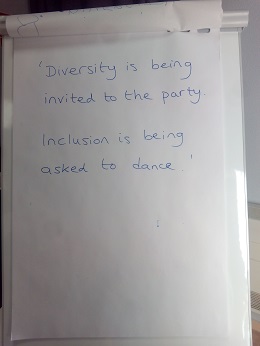 'Diversity is being
invited to the party.
Inclusion is being
asked to dance.'